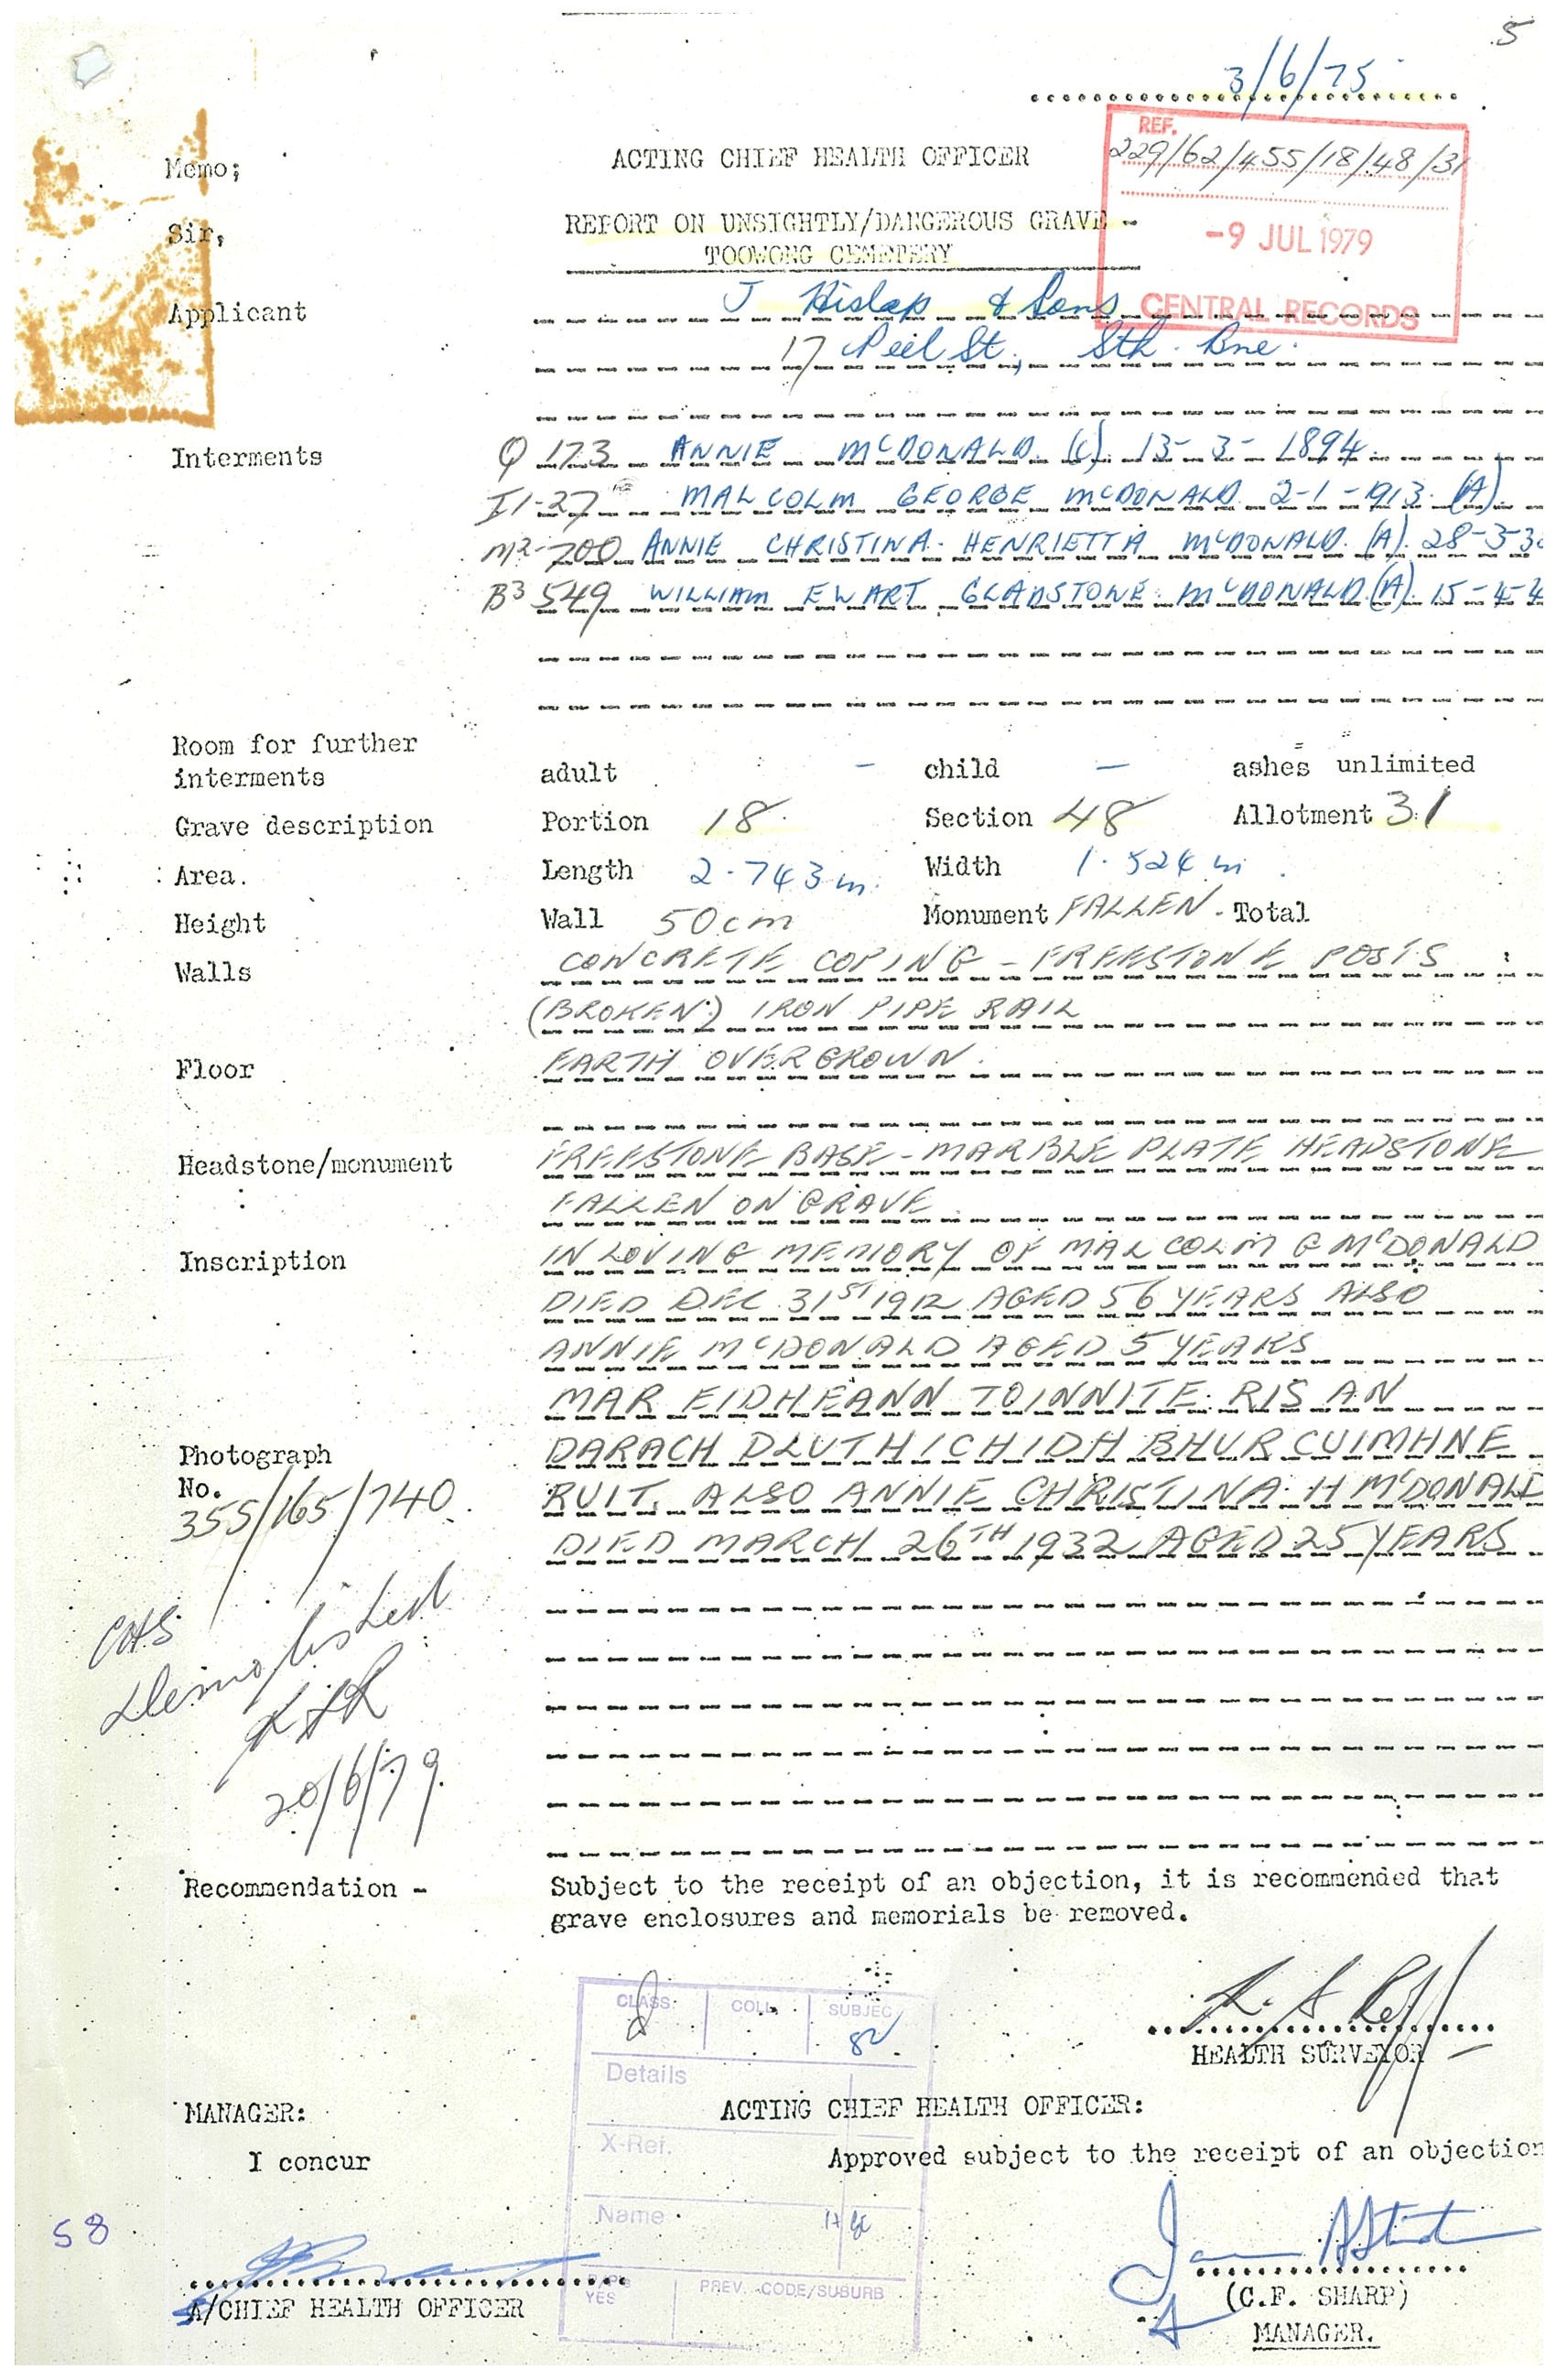 5
3/6/75
REF.
229/62/455/18/48/31
-9 JUL 1979
CENTRAL RECORDS
Memo;
ACTING CHIEF HEALTH OFFICER
Sir,
REPORT ON UNSIGHTLY/DANGEROUS GRAVE -
TOOWONG CEMETERY
Applicant J Hislop & Sons
17 Peel St., Sth. Bne.
Interments Q 173 ANNIE McDONALD. (C). 13-3-1894.
I1-27 MALCOLM GEORGE McDONALD. 2-1-1913. (A).
M2-700 ANNIE CHRISTINA. HENRIETTA McDONALD. (A). 28-3-3
B3 549 WILLIAM EWART GLADSTONE McDONALD. (A). 15-4-4
Room for further
interments adult - child - ashes unlimited
Grave description Portion 18. Section 48 Allotment 31
Area. Length 2.743m. Width 1.524m.
Height Wall 50cm Monument FALLEN. Total
Walls CONCRETE COPING - FREESTONE POSTS
(BROKEN) IRON PIPE RAIL
Floor EARTH OVERGROWN.
Headstone/monument FREESTONE BASE - MARBLE PLATE HEADSTONE
FALLEN ON GRAVE
Inscription IN LOVING MEMORY OF MALCOLM G McDONALD
DIED DEC. 31ST 1912 AGED 56 YEARS ALSO
ANNIE McDONALD AGED 5 YEARS
MAR EIDHEANN TOINNITE RIS AN
Photograph DARACH DLUTHICHIDH BHUR CUIMHNE
No. RUIT. ALSO ANNIE CHRISTINA H McDONALD
355/165/740. DIED MARCH 26TH 1932 AGED 25 YEARS
Demolished
20/6/79.
Recommendation - Subject to the receipt of an objection, it is recommended that
grave enclosures and memorials be removed.
CLASS. COLL. SUBJEC
82
HEALTH SURVEYOR
Details
MANAGER: ACTING CHIEF HEALTH OFFICER:
X-Ref.
I concur Approved subject to the receipt of an objection
Name
58
YES PREV. CODE/SUBURB
A/CHIEF HEALTH OFFICER (C.F. SHARP)
MANAGER.